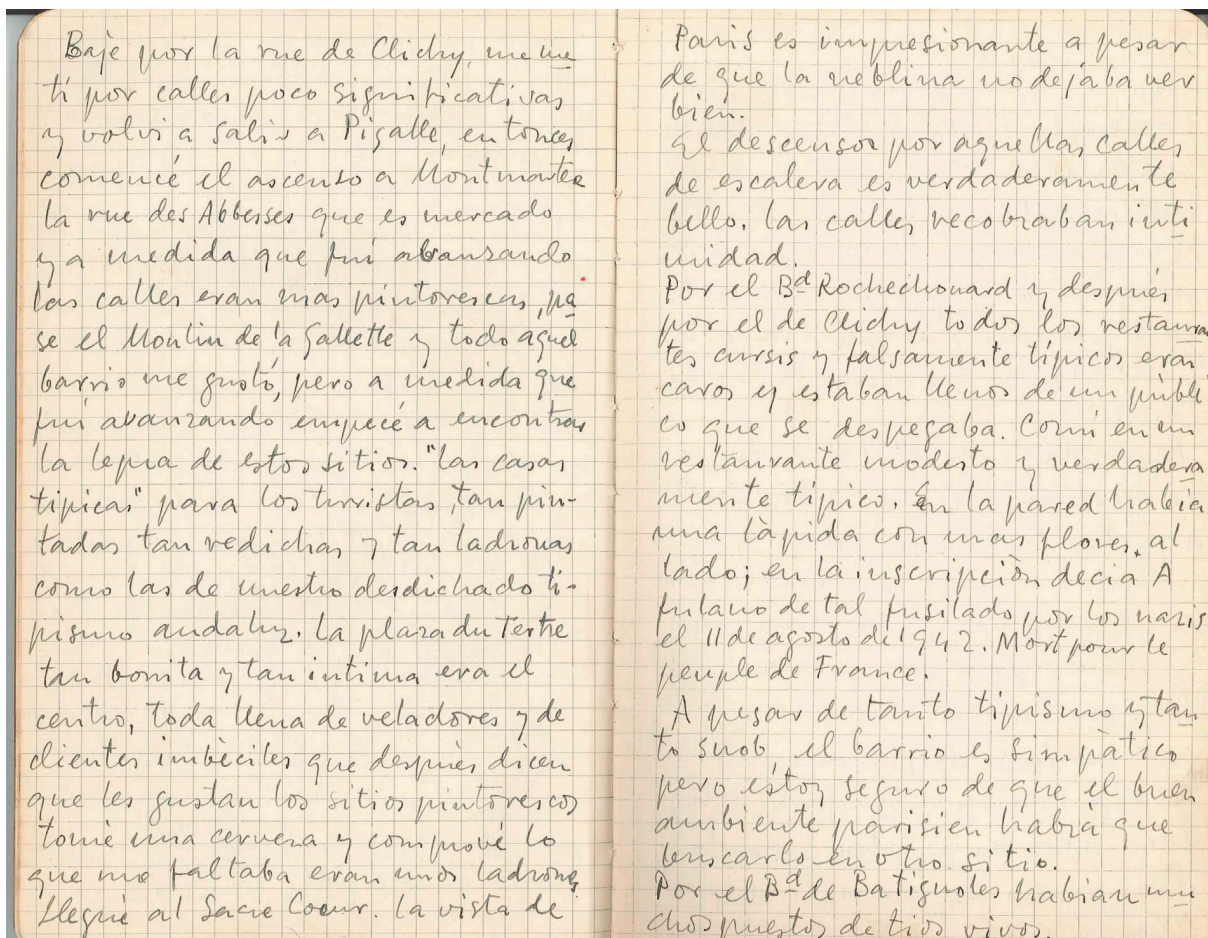 Baje por la rue de Clichy, me me
ti por calles poco significativas
y volvi a salir a Pigalle, entonces
comencé el ascenso a Montmartre
la rue des Abbesses que es mercado
y a medida que fui abanzando
las calles eran mas pintorescas, pa
se el Moulin de la Gallette y todo aquel
barrio me gustó, pero a medida que
fui avanzando empecé a encontrar
la lepra de estos sitios. "las casas
tipicas" para los turristas, tan pin-
tadas tan redichas y tan ladronas
como las de nuestro desdichado ti-
pismo andaluz. La plaza du Tertre
tan bonita y tan intima era el
centro, toda llena de veladores y de
clientes imbéciles que después dicen
que les gustan los sitios pintorescos
tomé una cerveza y comprové lo
que me faltaba eran unos ladrones.
Llegué al Sacre Coeur. La vista de
Paris es impresionante a pesar
de que la neblina no dejaba ver
bien.
El descenso por aquellas calles
de escalera es verdaderamente
bello. las calles recobraban inti
midad.
Por el Bd Rochechouard y después
por el de Clichy todos los restauran
tes cursis y falsamente típicos eran
caros y estaban llenos de un públi
co que se despegaba. Comí en un
restaurante modesto y verdadera
mente típico. En la pared habia
una làpida con unas flores al
lado; en la inscripciòn decia A
fulano de tal fusilado por los nazis
el 11 de agosto de 1942. Mort pour le
peuple de France.
A pesar de tanto tipismo y tan
to snob, el barrio es simpàtico
pero estoy seguro de que el buen
ambiente parisien habrá que
buscarlo en otro sitio.
Por el Bd de Batignoles habian mu
chos puestos de tios vivos.